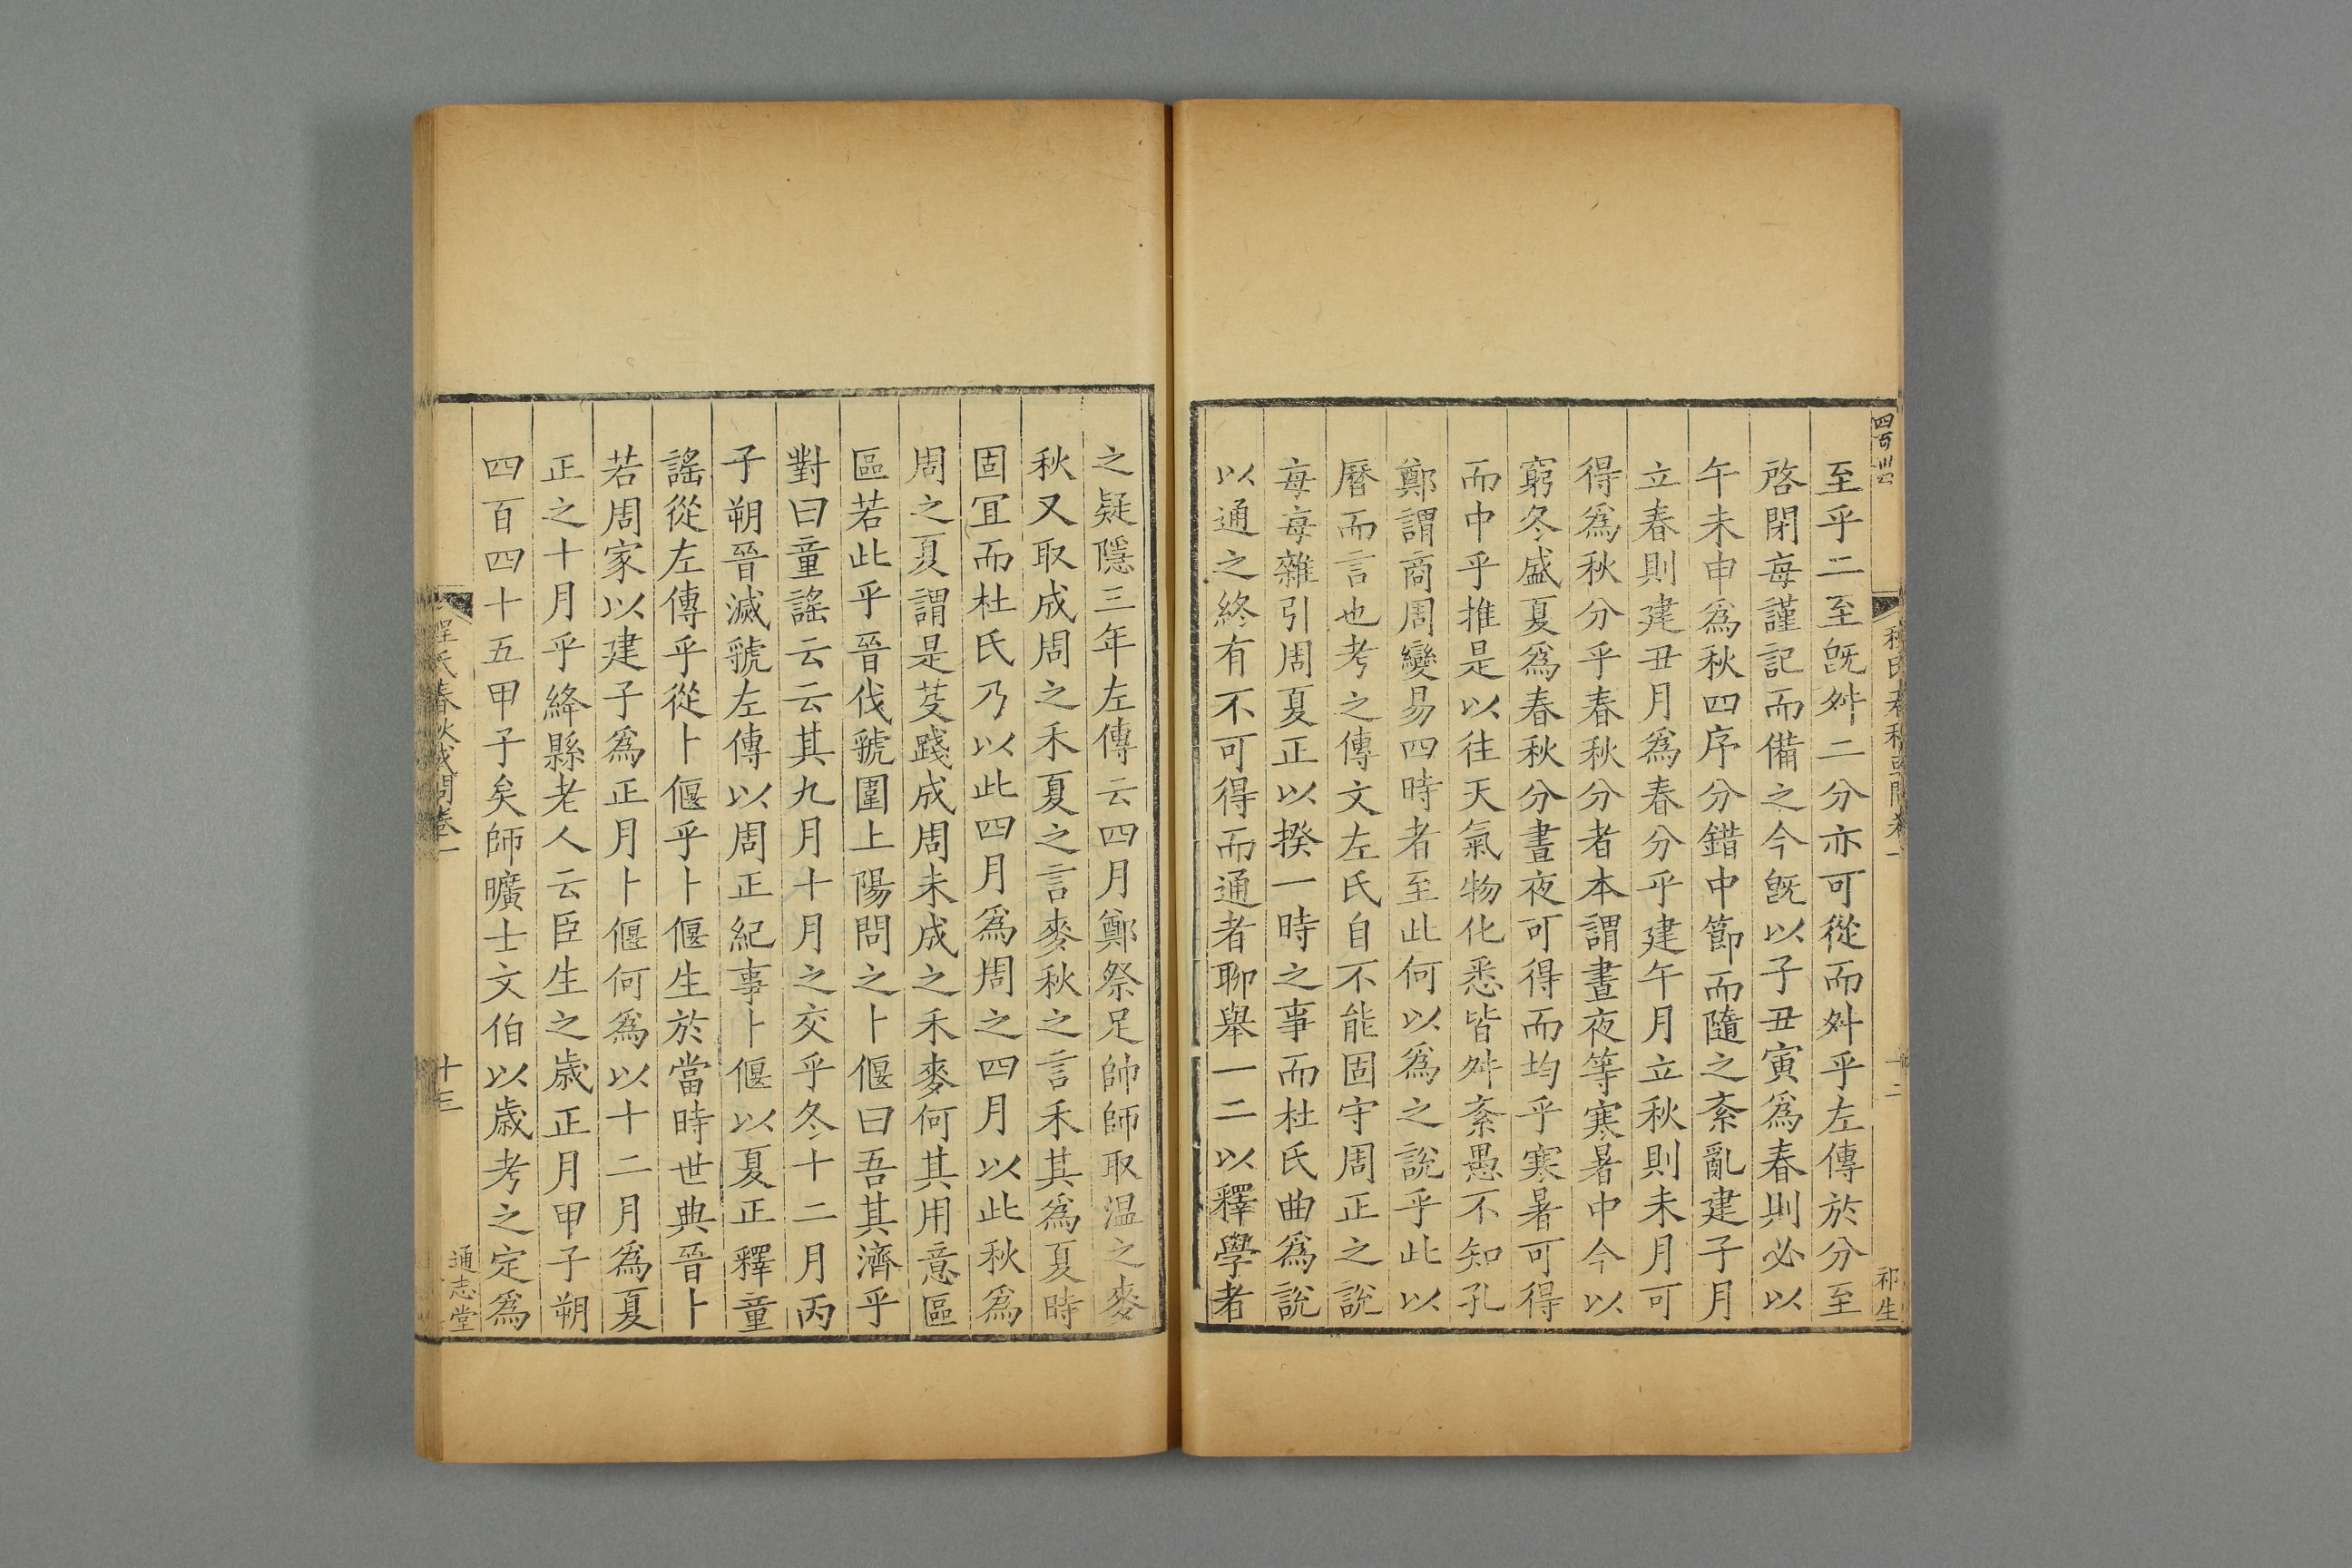 至乎二至旣舛二分亦可從而舛乎左傳於分至
啓閉每謹記而備之今旣以子丑寅爲春則必以
午未申爲秋四序分錯中節而隨之紊亂建子月
立春則建丑月爲春分乎建午月立秋則未月可
得爲秋分乎春秋分者本謂晝夜等寒暑中今以
窮冬盛夏爲春秋分晝夜可得而均乎寒暑可得
而中乎推是以往天氣物化悉皆舛紊愚不知孔
鄭謂商周變易四時者至此何以爲之說乎此以
曆而言也考之傳文左氏自不能固守周正之說
每每雜引周夏正以揆一時之事而杜氏曲爲說
以通之終有不可得而通者聊舉一二以釋學者
之疑隱三年左傳云四月鄭祭足帥師取温之麥
秋又取成周之禾夏之言麥秋之言禾其爲夏時
固冝而杜氏乃以此四月爲周之四月以此秋爲
周之夏謂是芟踐成周未成之禾麥何其用意區
區若此乎晉伐虢圍上陽問之卜偃曰吾其濟乎
對曰童謠云云其九月十月之交乎冬十二月丙
子朔晉滅虢左傳以周正紀事卜偃以夏正釋童
謠從左傳乎從卜偃乎卜偃生於當時世典晉卜
若周家以建子爲正月卜偃何爲以十二月爲夏
正之十月乎絳縣老人云臣生之歲正月甲子朔
四百四十五甲子矣師曠士文伯以歲考之定爲
程氏春秋或問卷一
十三
通志堂
祁生